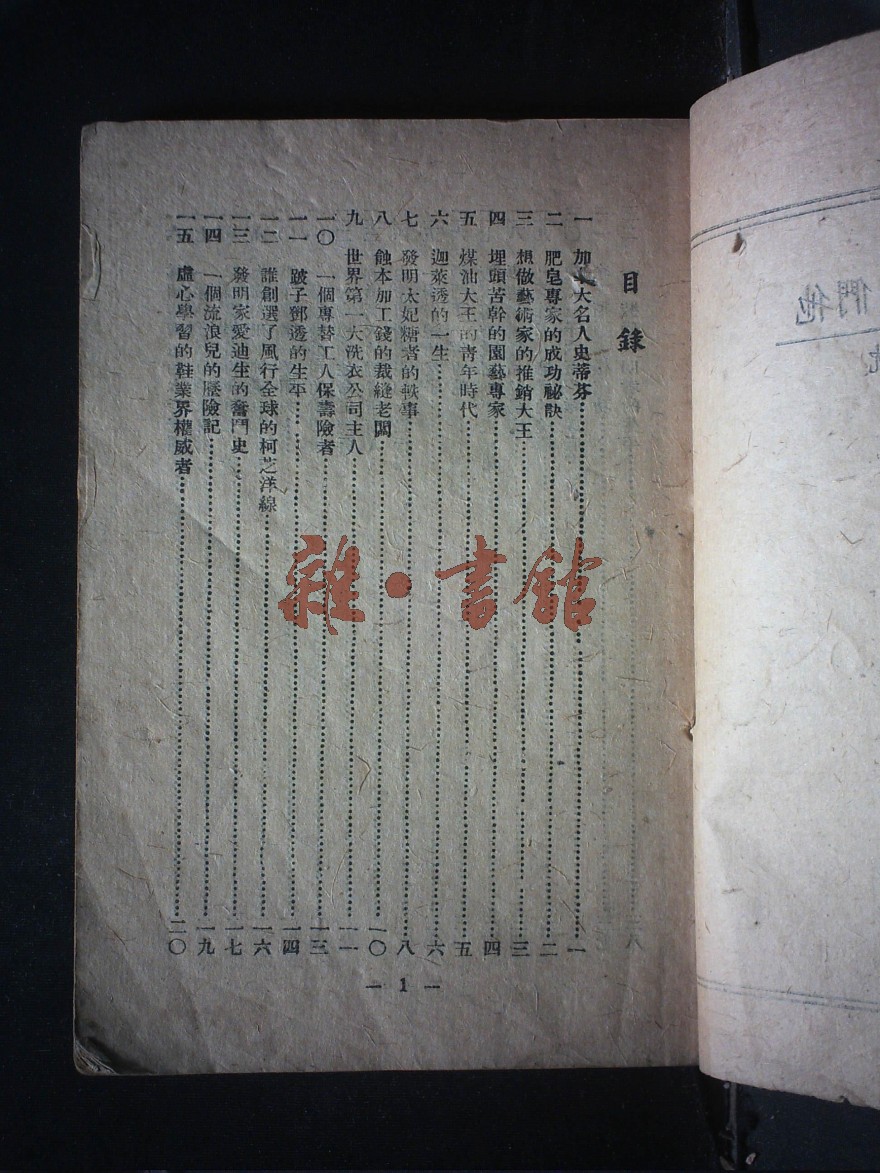 目錄
一 加拿大名人史蒂芬 一
二 肥皂專家的成功祕訣 二
三 想做藝術家的推銷大王 三
四 埋頭苦幹的園藝專家 四
五 煤油大王的青年時代 五
六 迦萊透的一生 六
七 發明太妃糖者的軼事 八
八 蝕本加工錢的裁縫老闆 一〇
九 世界第一大洗衣公司主人 一一
一〇 一個專替工人保壽險者 一三
一一 跛子鄧透的生平 一四
一二 誰創選了風行全球的柯芝洋線 一六
一三 發明家愛迪生的奮鬥史 一七
一四 一個流浪兒的歷險記 一九
一五 虛心學習的鞋業界權威者 二〇
— 1 —
雜·書館
他們